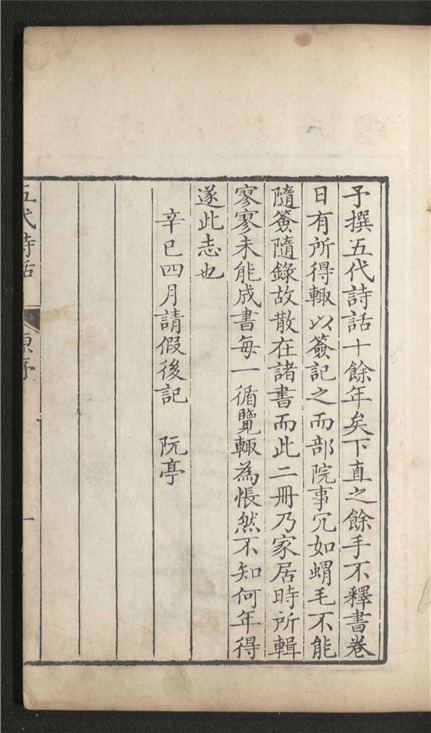 予撰五代詩話十餘年矣下直之餘手不釋書卷
日有所得輙以簽記之而部院事冗如蝟毛不能
隨簽隨錄故散在諸書而此二冊乃家居時所輯
寥寥未能成書每一循覽輙為悵然不知何年得
遂此志也
辛巳四月請假後記　阮亭
五代詩話　原序　一